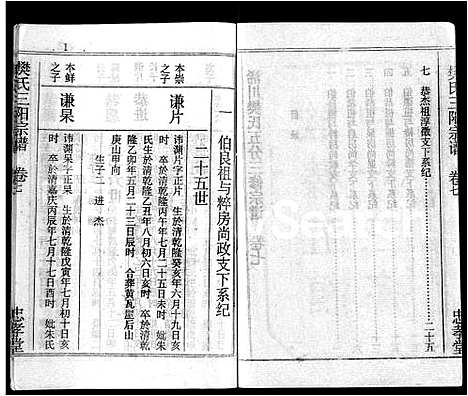 樊氏三阳宗谱 卷七
忠孝堂
七 恭杰祖淳徵支下系纪
二十五
一 伯良祖与粹房尚政支下系纪
二十五世
本崇之子
谦片
讳渊片字正片 生于清乾隆癸亥年六月十九日亥
时 卒于清乾隆丙午年七月二十五日未时 妣朱
氏生于清乾隆乙丑年八月初六日亥时 卒于清乾
隆乙卯年五月二十三日辰时 合葬黄瓦屋后山
庚山甲向
生子二 进 杰
本鲜之子
谦杲
讳渊杲字正杲 生于清乾隆戊寅年七月初十日亥
时 卒于清嘉庆丙辰年七月十七日酉时 妣朱氏
1
樊氏三阳宗谱 卷七
忠孝堂